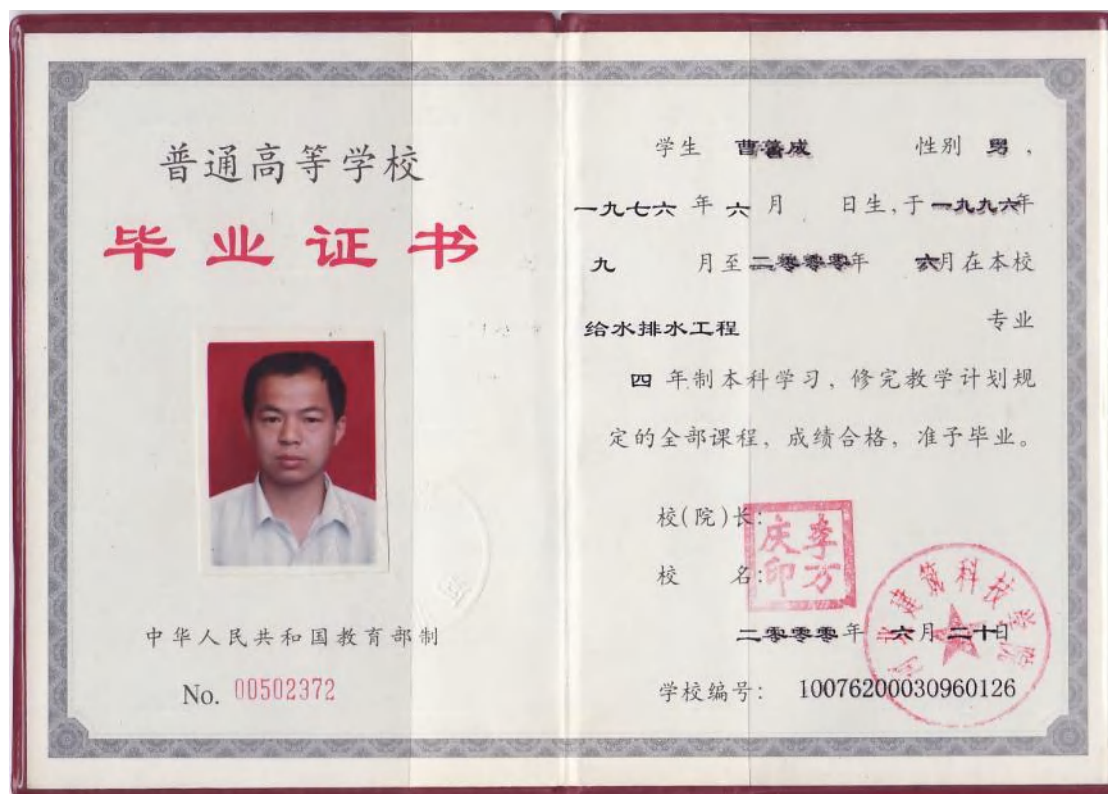 普通高等学校
毕业证书
中华人民共和国教育部制
No. 00502372
学生 曹 成 性别 男，
一九七六 年 六 月 日生，于 一九九六年
九 月至 二零零零年 六月在本校
给水排水工程 专业
四 年制本科学习，修完教学计划规
定的全部课程，成绩合格，准予毕业。
校(院)长：
李万庆印
校 名：
河北建筑科技学院
二零零零年 六月二十日
学校编号： 10076200030960126